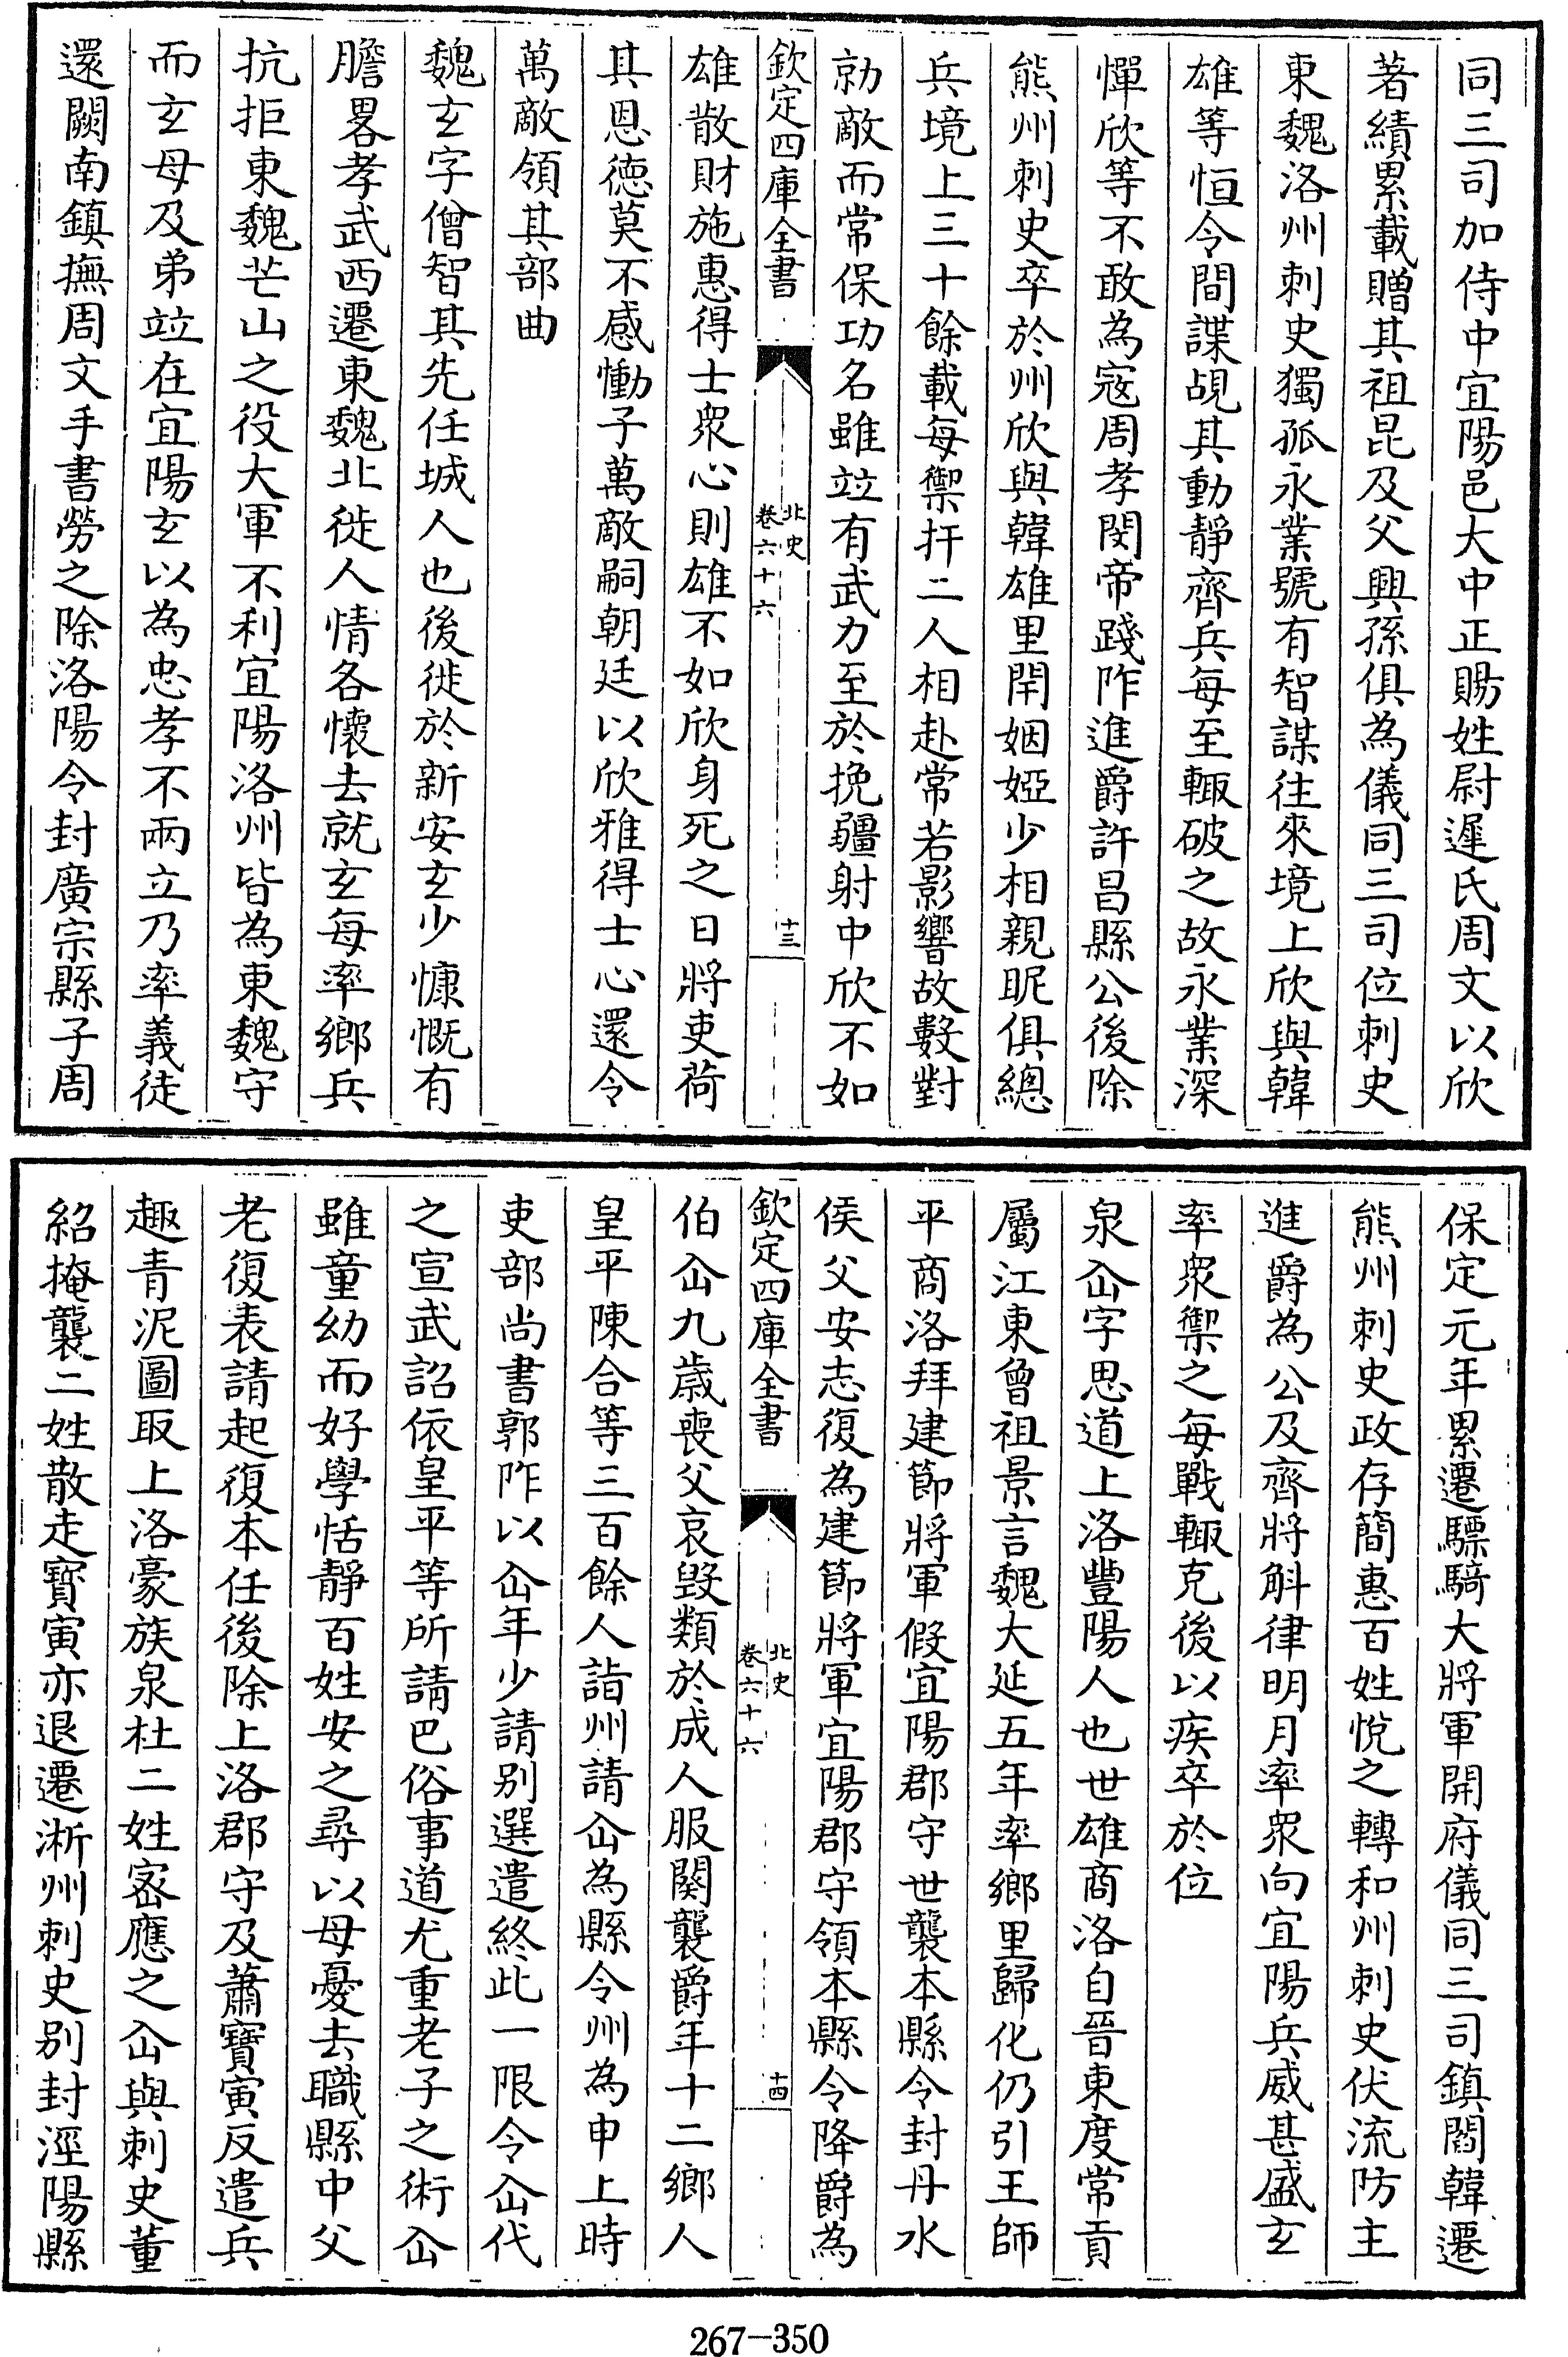 同三司加侍中宜陽邑大中正賜姓尉遲氏周文以欣
著績累載贈其祖昆及父興孫俱為儀同三司位刺史
東魏洛州刺史獨孤永業號有智謀往來境上欣與韓
雄等恒令間諜覘其動靜齊兵每至輙破之故永業深
憚欣等不敢為宼周孝閔帝踐阼進爵許昌縣公後除
熊州刺史卒於州欣與韓雄里閈姻婭少相親昵俱總
兵境上三十餘載每禦扞二人相赴常若影響故數對
勍敵而常保功名雖竝有武力至於挽彊射中欣不如
欽定四庫全書
北史
卷六十六
十三
雄散財施惠得士衆心則雄不如欣身死之日將吏荷
其恩德莫不感慟子萬敵嗣朝廷以欣雅得士心還令
萬敵領其部曲
魏玄字僧智其先任城人也後徙於新安玄少慷慨有
膽畧孝武西遷東魏北徙人情各懷去就玄每率鄉兵
抗拒東魏芒山之役大軍不利宜陽洛州皆為東魏守
而玄母及弟竝在宜陽玄以為忠孝不兩立乃率義徒
還闕南鎮撫周文手書勞之除洛陽令封廣宗縣子周
保定元年累遷驃騎大將軍開府儀同三司鎮閻韓遷
熊州刺史政存簡惠百姓悅之轉和州刺史伏流防主
進爵為公及齊將斛律明月率衆向宜陽兵威甚盛玄
率衆禦之每戰輙克後以疾卒於位
泉仚字思道上洛豐陽人也世雄商洛自晉東度常貢
屬江東曾祖景言魏大延五年率鄉里歸化仍引王師
平商洛拜建節將軍假宜陽郡守世襲本縣令封丹水
侯父安志復為建節將軍宜陽郡守領本縣令降爵為
欽定四庫全書
北史
卷六十六
十四
伯仚九歲喪父哀毀類於成人服闋襲爵年十二鄉人
皇平陳合等三百餘人詣州請仚為縣令州為申上時
吏部尚書郭阼以仚年少請别選遣終此一限令仚代
之宣武詔依皇平等所請巴俗事道尤重老子之術仚
雖童幼而好學恬靜百姓安之尋以母憂去職縣中父
老復表請起復本任後除上洛郡守及蕭寶寅反遣兵
趣青泥圖取上洛豪族泉杜二姓宻應之仚與刺史董
紹掩襲二姓散走寶寅亦退遷淅州刺史别封涇陽縣
267-350